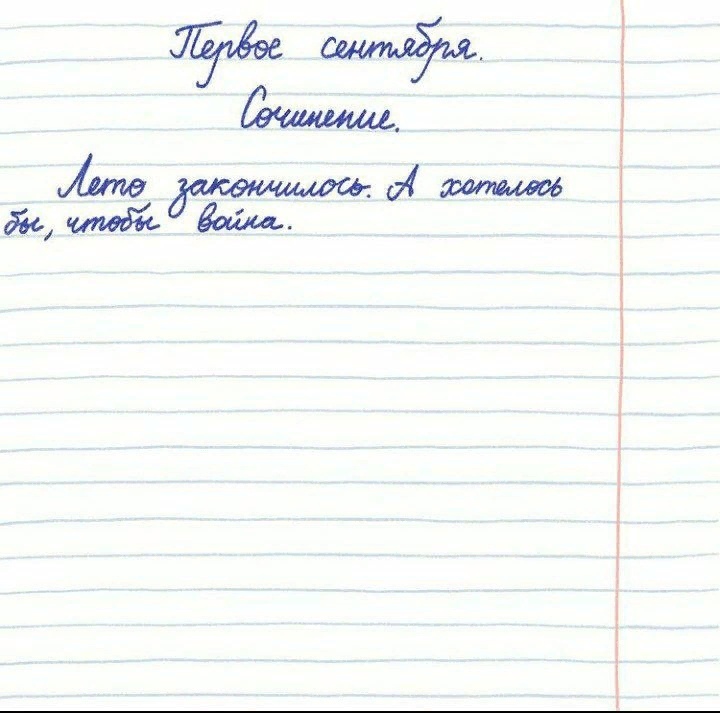 Первое сентября.
Сочинение.
Лето закончилось. А хотелось
бы, чтобы война.